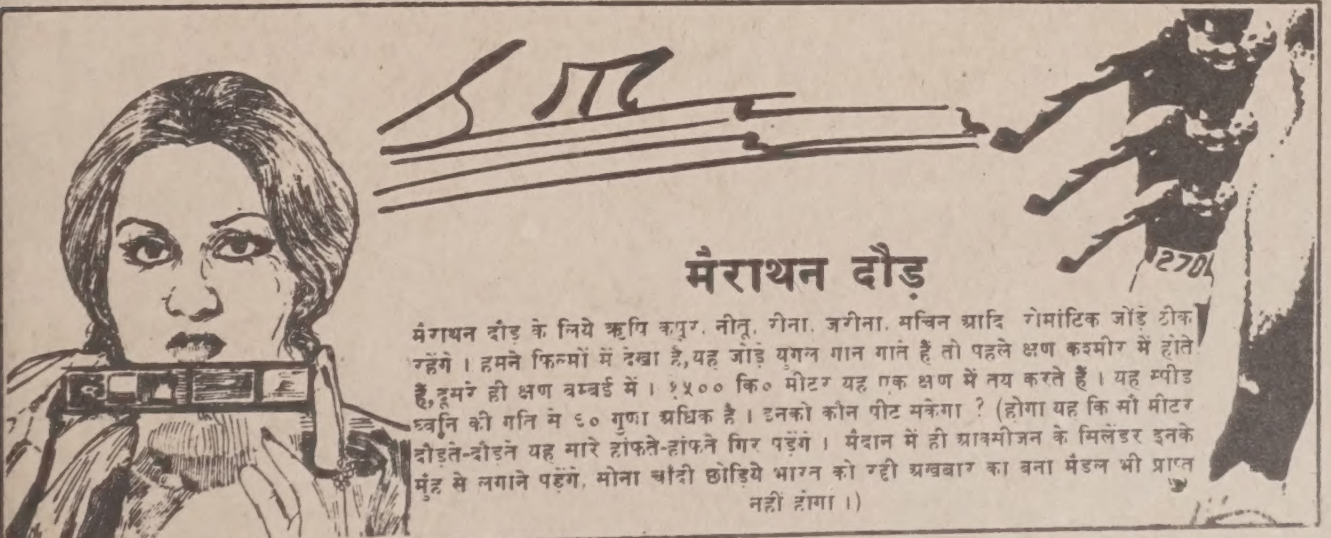 मैराथन दौड़
मैराथन दौड़ के लिये ऋषि कपूर, नीतू, रीना, जरीना, सचिन आदि रोमांटिक जोड़े ठीक
रहेंगे । हमने फिल्मों में देखा है, यह जोड़े युगल गान गाते हैं तो पहले क्षण कश्मीर में होते
हैं, दूसरे ही क्षण बम्बई में । १५०० कि० मीटर यह एक क्षण में तय करते हैं । यह स्पीड
ध्वनि की गति से ६० गुणा अधिक है । इनको कौन पीट सकेगा ? (होगा यह कि सौ मीटर
दौड़ते-दौड़ते यह सारे हांफते-हांफते गिर पड़ेंगे । मैदान में ही आक्सीजन के सिलेंडर इनके
मुंह से लगाने पड़ेंगे, सोना चांदी छोड़िये भारत को रद्दी अखबार का बना मैडल भी प्राप्त
नहीं होगा ।)
270